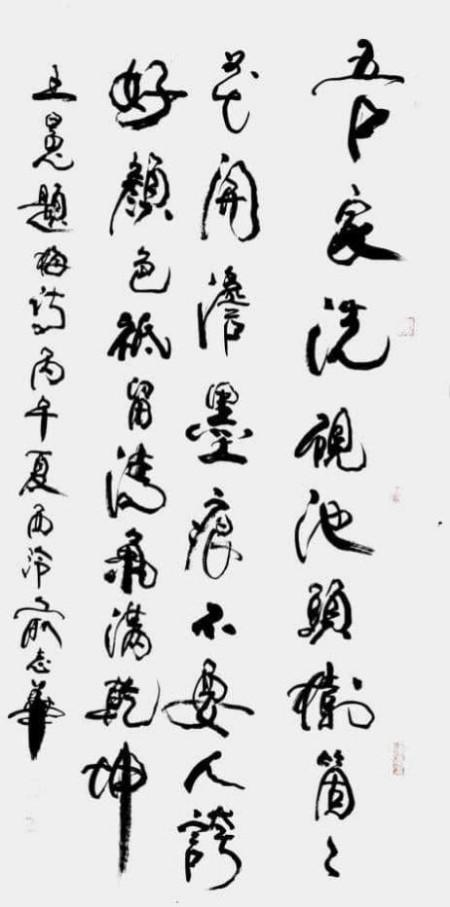 吾家洗硯池頭樹箇々
花開澹墨痕不要人誇
好顏色祇留清氣滿乾坤
王冕題梅詩丙午夏西泠俞志華